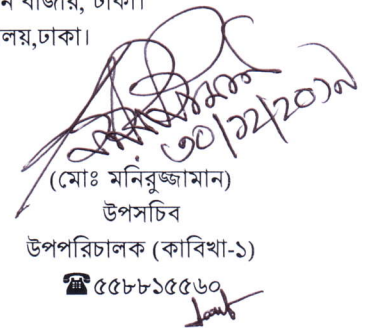 ন বাজার, ঢাকা।
লয়,ঢাকা।
৩০/১২/২০১৯
(মোঃ মনিরুজ্জামান)
উপসচিব
উপপরিচালক (কাবিখা-১)
☎৫৫৮৮১৫৫৬০